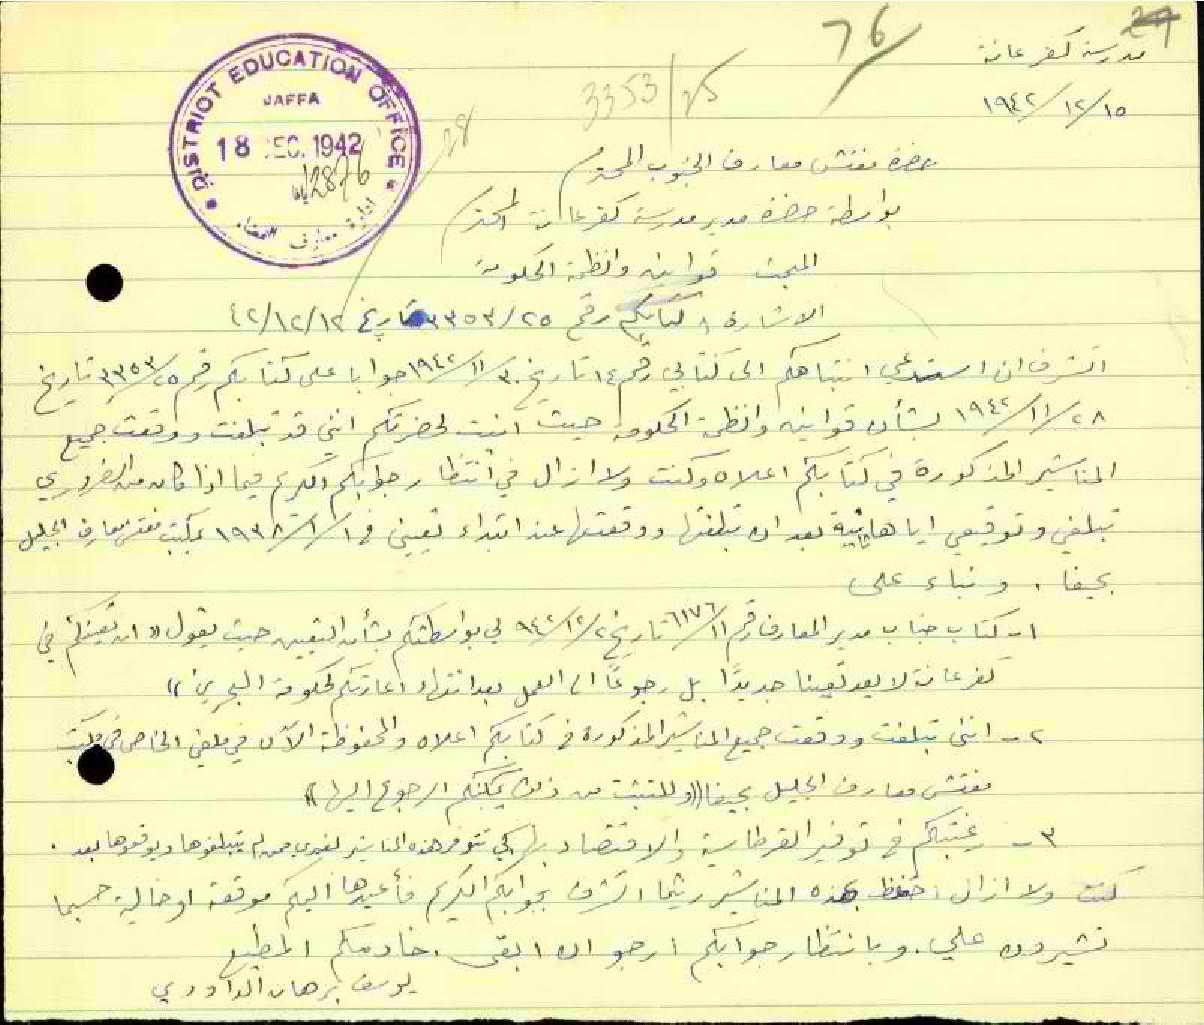 76
29
مدرسة كفرعانة
3353/25
١٩٤٢/١٢/١٥
DISTRICT EDUCATION OFFICE
JAFFA
18 DEC. 1942
12876
ادارة معارف القضاء
28
حضرة مفتش معارف الجنوب المحترم
بواسطة حضرة مدير مدرسة كفرعانة المحترم
المبحث قوانين وانظمة الحكومة
الاشارة كتابكم رقم ٣٣٥٣/٢٥ تاريخ ٤٢/١٢/١٢
اتشرف ان استدعي انتباهكم الى كتابي رقم ١٤ تاريخ ١٩٤٢/١١/٣٠ جوابا على كتابكم رقم ٣٣٥٣/٢٥ تاريخ
١٩٤٢/١١/٢٨ بشأن قوانين وانظمة الحكومة حيث اثبت لحضرتكم انني قد تبلغت ووقعت جميع
المناشير المذكورة في كتابكم اعلاه وكنت ولا ازال في انتظار جوابكم الكريم فيما اذا كان من الضروري
تبلغي وتوقيعي اياها ثانية بعد ان تبلغتها ووقعتها عند ابتداء تعييني في ١٩٣٨/١/١ بمكتب مفتش معارف الجليل
بحيفا . وبناء على
١ـ كتاب جناب مدير المعارف رقم ٦١٧٦/١١ تاريخ ٩٤٢/١٢/٢ لي بواسطتكم بشأن التعيين حيث يقول « ان تعيينكم في
كفرعانة لا يعد تعيينا جديدًا بل رجوعًا الى العمل بعد انتهاء اعارتكم لحكومة البحرين »
٢ـ انني تبلغت ووقعت جميع المناشير المذكورة في كتابكم اعلاه والمحفوظة الآن في ملفي الخاص في مكتب
مفتش معارف الجليل بحيفا «وللتثبت من ذلك يمكنكم الرجوع اليها»
٣ـ رغبتكم في توفير القرطاسية والاقتصاد بها كي تتوفر هذه المناشير لغيري ممن لم يتبلغوها ويوقعوها بعد .
كنت ولا ازال احتفظ بهذه المناشير ريثما اتشرف بجوابكم الكريم فأعيدها اليكم موقعة او خالية حسبما
تشيرون علي . وبانتظار جوابكم ارجو ان ابقى . خادمكم المطيع
يوسف برهان الداودي